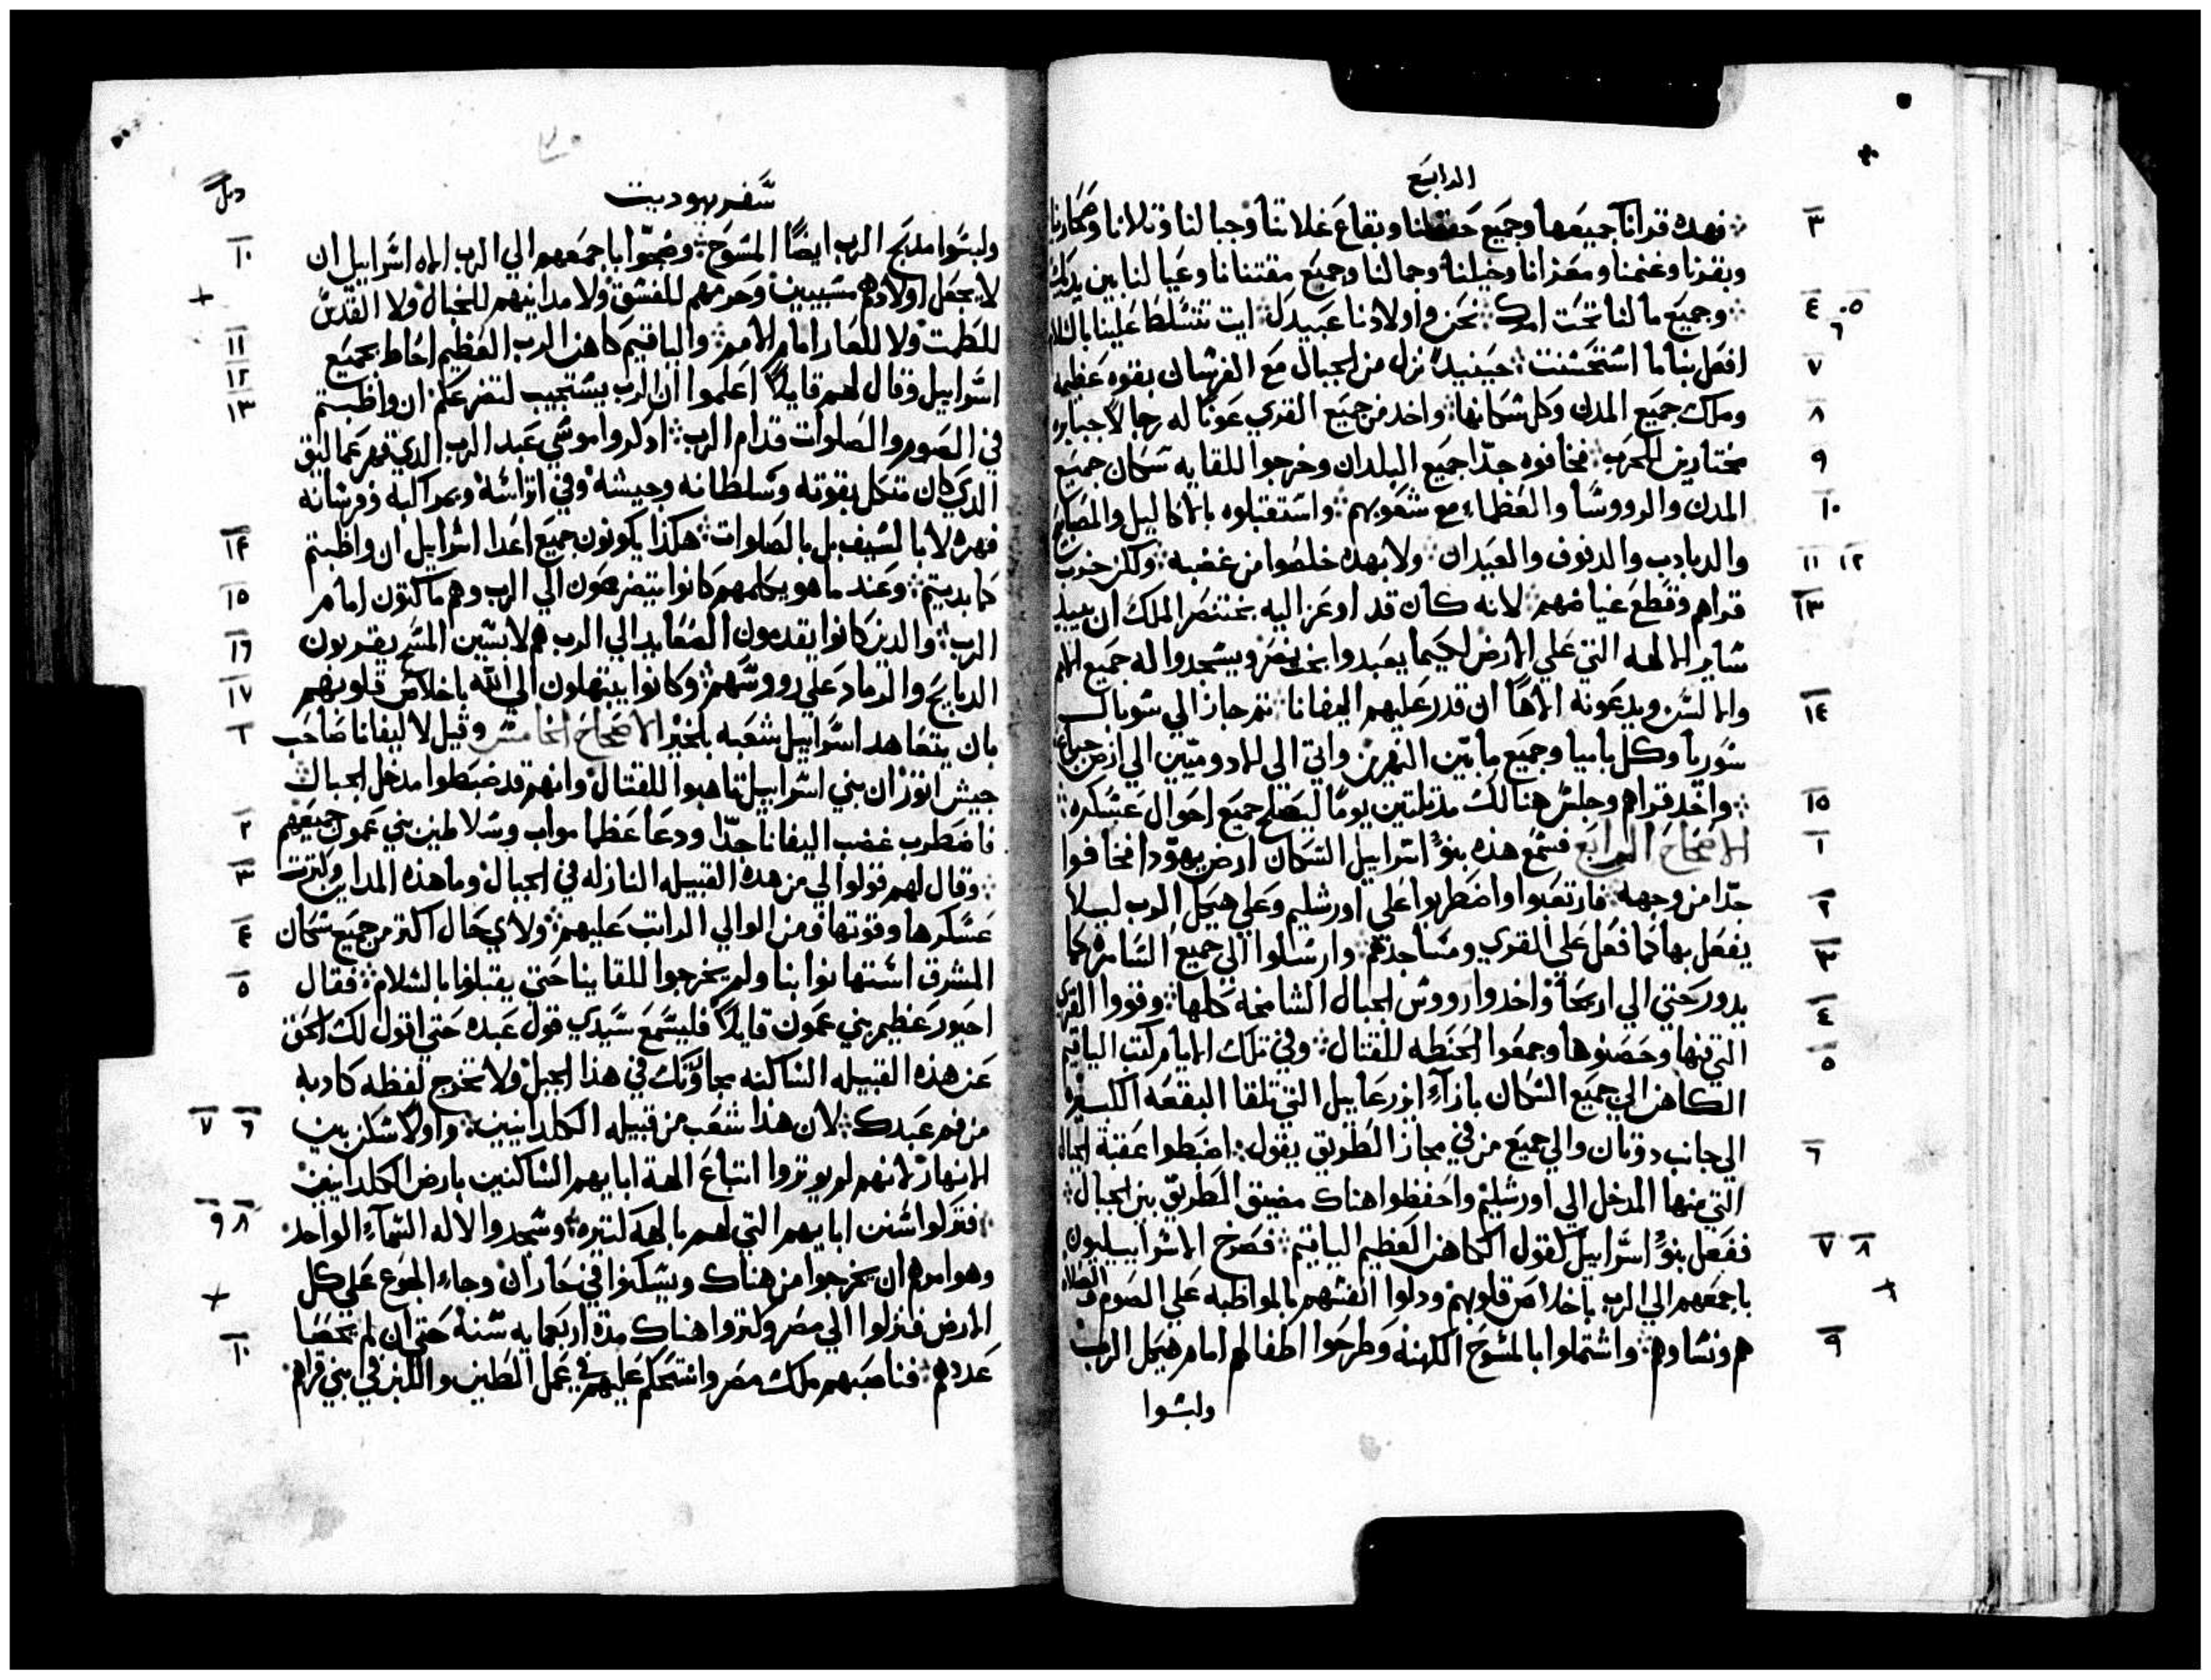 الرابع
٣ فهذه قرانا جميعها وجميع حقولنا وبقاع غلاتنا وجبالنا وتلالنا
وبقرنا وغنمنا ومعزانا وخيلنا وجمالنا وجميع مقتنانا وعيالنا بين يديك
٤ ٥ ٦ وجميع مالنا تحت امرك نحن واولادنا عبيدك ايت تتسلط علينا بالسلام
٧ افعل بنا ما استحسنت حينيد نزل من الجبال مع الفرسان بقوه عظيمه
٨ وملك جميع المدن وكل سكانها واخد من جميع القري عونا له رجالا جبابره
٩ مختارين للحرب فخافوه جدا جميع البلدان وخرجوا للقايه سكان جميع
١٠ المدن والرووسا والعظماء مع شعوبهم واستقبلوه بالاكاليل والمصابيح
١١ ١٢ والدبادب والدفوف والعيدان ولا بهده خلصوا من غضبه ولكن خرب
١٣ قراهم وقطع غياضهم لانه كان قد اوعز اليه بختنصر الملك ان يبيد
ساير الالهه التي علي الارض لكيما يعبدوا بختنصر ويسجدوا له جميع الامم
١٤ والالسن ويدعونه الاها ان قدر عليهم اليفانا تم جاز الي سوبال
سوريا وكل باميا وجميع ما بين النهرين واتي الي الادوميين الي ارض جبعا
١٥ واخد قراهم وجلس هنالك مدة تلتين يوما ليصلح جميع احوال عسكره
١ الاصحاح الرابع فسمع هذه بنو اسراييل السكان ارض يهودا فخافوا
٢ جدا من وجهه فارتعبوا واضطربوا علي اورشليم وعلي هيكل الرب ليلا
٣ يفعل بها كما فعل علي القري ومساجدهم وارسلوا الي جميع السامره كما
٤ يدور حتي الي اريحا واخدوا رووس الجبال الشامخه كلها وقووا القري
٥ التي فيها وحصنوها وجمعوا الحنطه للقتال وفي تلك الايام كتب الياقيم
الكاهن الي جميع السكان بازاء ازرعاييل التي تلقا البقعه الكبيره
٦ الي جانب دوتان والي جميع من في مجاز الطريق يقول اضبطوا عقبة الجبال
التي منها المدخل الي اورشليم واحفظوا هناك مضيق الطريق بين الجبال
٧ ٨ ففعل بنو اسراييل كقول الكاهن العظيم الياقيم فصرخ الاسراييليون
باجمعهم الي الرب باخلاص قلوبهم ودلوا انفسهم بالمواظبه علي الصوم والصلاه
٩ هم ونساوهم واشتملوا بالمسوح الكهنه وطرحوا اطفالهم امام هيكل الرب
ولبسوا
سفر يهوديت
١٠ ولبسوا مدبح الرب ايضا المسوح وضجوا باجمعهم الي الرب الاه اسراييل ان
لا يجعل اولادهم مسبيين وحرمهم للفسق ولا مداينهم للخبال ولا القدس
١١ للطمت ولا للعار امام الامم والياقيم كاهن الرب العظيم احاط بجميع
١٢ اسراييل وقال لهم قايلا اعلموا ان الرب يستجيب لتضرعكم ان واظبتم
١٣ في الصوم والصلوات قدام الرب ادكروا موسي عبد الرب الدي قهر عماليق
الدي كان متكل بقوته وسلطانه وجيشه وفي اتراسه وبمراكبه وفرسانه
١٤ فهره لا بالسيف بل بالصلوات هكذا يكونون جميع اعدا اسراييل ان واظبتم
١٥ كما بديتم وعند ما هو يكلمهم كانوا يتضرعون الي الرب وهم ماكتون امام
١٦ الرب والدين كانوا يقدمون الصعايد الي الرب هم لابسين المسح يقربون
١٧ الدبايح والرماد علي رووسهم وكانوا يبتهلون الي الله باخلاص قلوبهم
١ بان يتعاهد اسراييل شعبه بالخير الاصحاح الخامس وقيل لاليفانا صاحب
جيش اتور ان بني اسراييل تاهبوا للقتال وانهم قد ضبطوا مدخل الجبال
٢ فاضطرب غضب اليفانا جدا ودعا عظما مواب وسلاطين بني عمون جميعهم
٣ وقال لهم قولوا لي من هده القبيله النازله في الجبال وما هذه المداين وكترت
٤ عسكرها وقوتها ومن الوالي الراتب عليهم ولاي حال اكتر من جميع سكان
٥ المشرق استهانوا بنا ولم يخرجوا للقاينا حتي يقبلونا بالسلام فقال
احيور عظيم بني عمون قايلا فليسمع سيدي قول عبده حتي اقول لك الحق
عن هذه القبيله الساكنه بجاونك في هذا الجبل ولا تخرج لفظه كادبه
٦ ٧ من فم عبدك لان هذا شعب من قبيله الكلدانيين واولا سكن بين
الانهار لانهم لم يوتروا اتباع الهة ابايهم الساكنين بارض الكلدانيين
٨ ٩ فتركوا سنن ابايهم التي لهم بالهة كتيره وسجدوا لاله السماء الواحد
وهو امرهم ان يخرجوا من هناك ويسكنوا في حاران وجاء الجوع علي كل
الارض فنزلوا الي مصر وكتروا هناك مدة اربعمايه سنة حتي ان لم يحصا
١٠ عددهم فناصبهم ملك مصر واستحكم عليهم في عمل الطين واللبن في بني قراهم